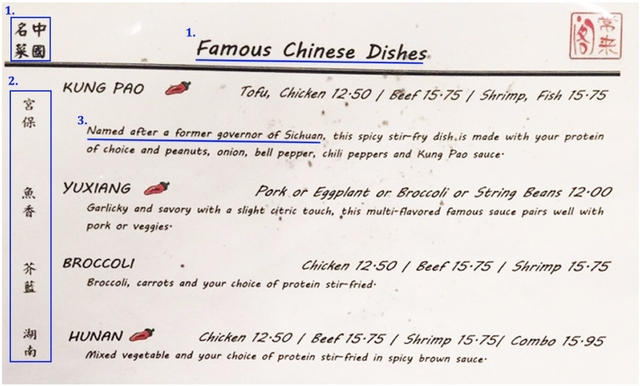 1.
中國
名菜
1.
Famous Chinese Dishes
2.
宮保
KUNG PAO
Tofu, Chicken 12.50 / Beef 15.75 / Shrimp, Fish 15.75
3.
Named after a former governor of Sichuan, this spicy stir-fry dish is made with your protein
of choice and peanuts, onion, bell pepper, chili peppers and Kung Pao sauce.
魚香
YUXIANG
Pork or Eggplant or Broccoli or String Beans 12.00
Garlicky and savory with a slight citric touch, this multi-flavored famous sauce pairs well with
pork or veggies.
芥藍
BROCCOLI
Chicken 12.50 / Beef 15.75 / Shrimp 15.75
Broccoli, carrots and your choice of protein stir-fried.
湖南
HUNAN
Chicken 12.50 / Beef 15.75 / Shrimp 15.75/ Combo 15.95
Mixed vegetable and your choice of protein stir-fried in spicy brown sauce.